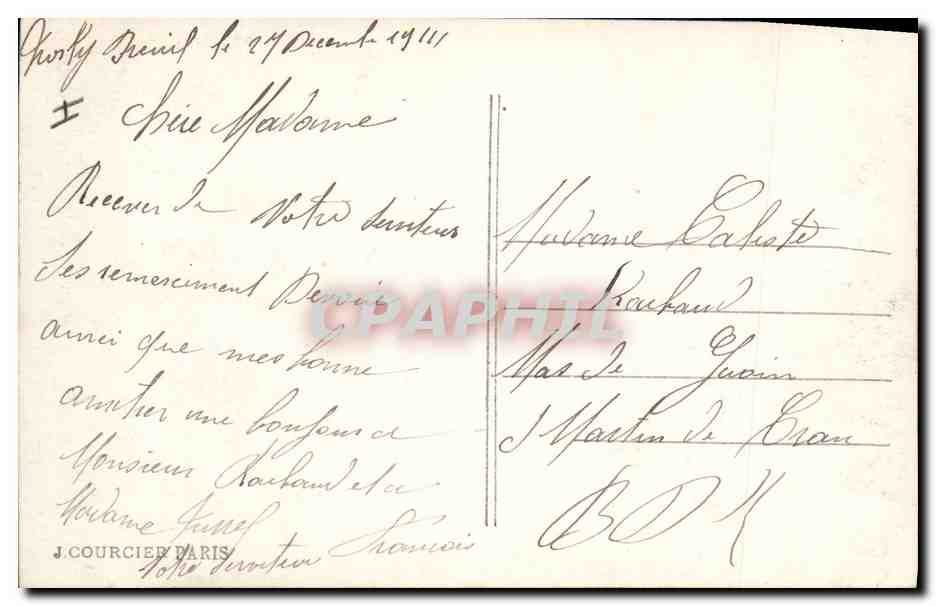 Breuil le 27 Decembe 1911
Chère Madame
Recever de Votre serviteur
Ses remerciment
ainsi que mes bonne
amitier une bonjour a
Monsieur Raibaud et a
Madame
Votre Serviteur Francois
J. COURCIER PARIS
Madame Caliste
Raibaud
Mas de Guoin
S Martin de Crau
BDR
CPAPHIL